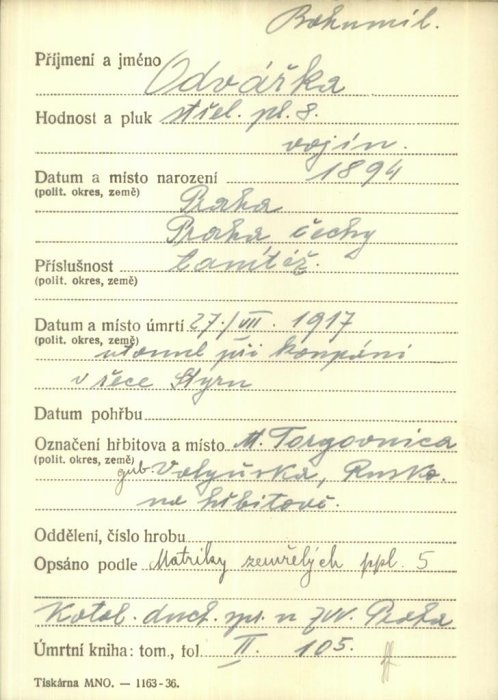 Bohumil.
Příjmení a jméno Odvářka
Hodnost a pluk střel. pl. 8.
vojín.
Datum a místo narození 1894
(polit. okres, země) Praha
Praha Čechy
Příslušnost tamtéž.
(polit. okres, země)
Datum a místo úmrtí 27./VII. 1917
(polit. okres, země) utonul při koupání
v řece Styru
Datum pohřbu
Označení hřbitova a místo M. Torgovnica
(polit. okres, země) gub. Volyňská, Rusko.
na hřbitově.
Oddělení, číslo hrobu
Opsáno podle Matriky zemřelých ppl. 5
Katol. duch. spr. u ZVV. Praha
Úmrtní kniha: tom., fol. II. 105.
Tiskárna MNO. — 1163-36.